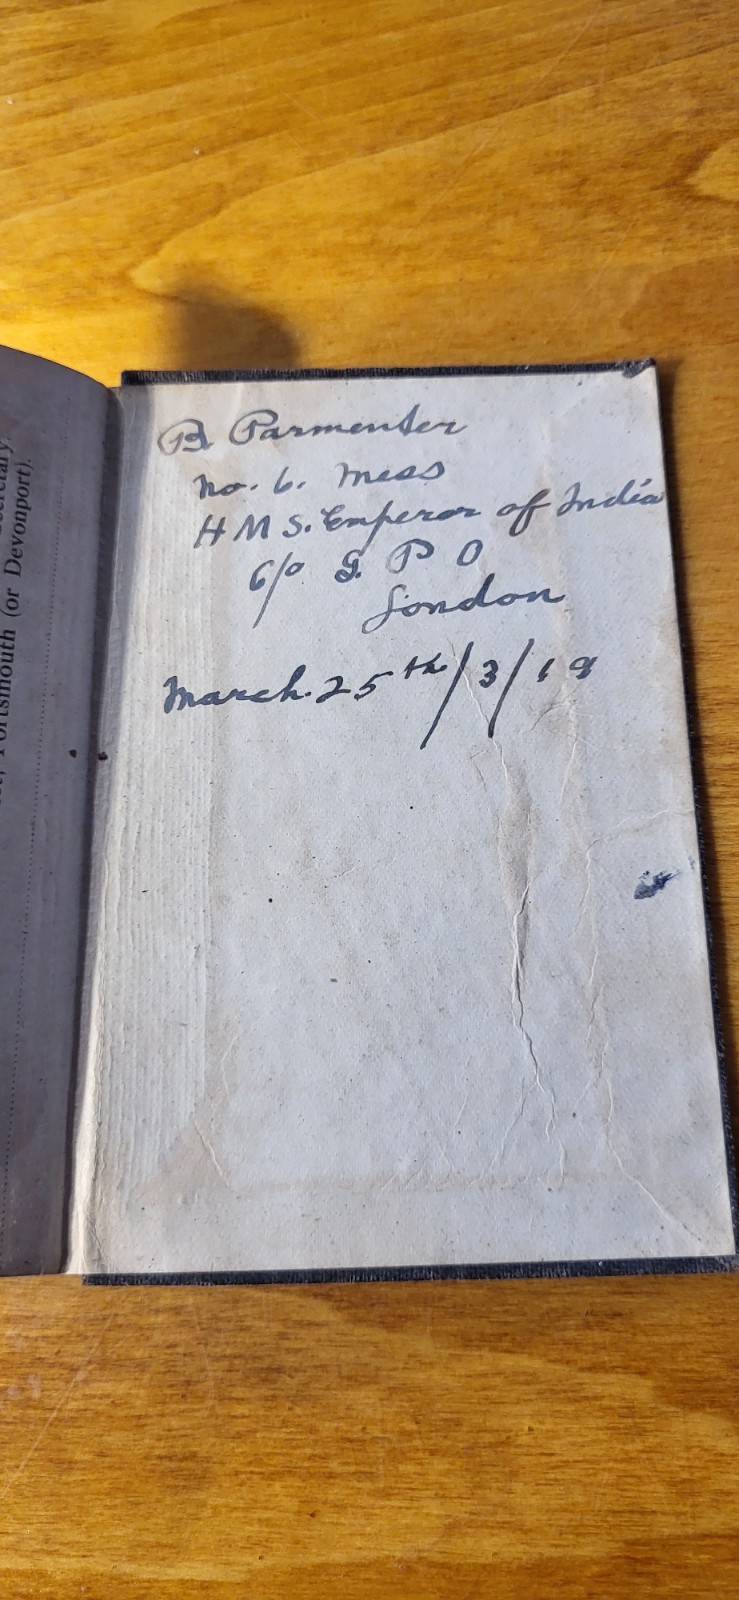 Secretary,
Portsmouth (or Devonport).
B. Parmenter
No. 6. Mess
H M S. Emperor of India
c/o G. P O
London
March. 25th/3/19